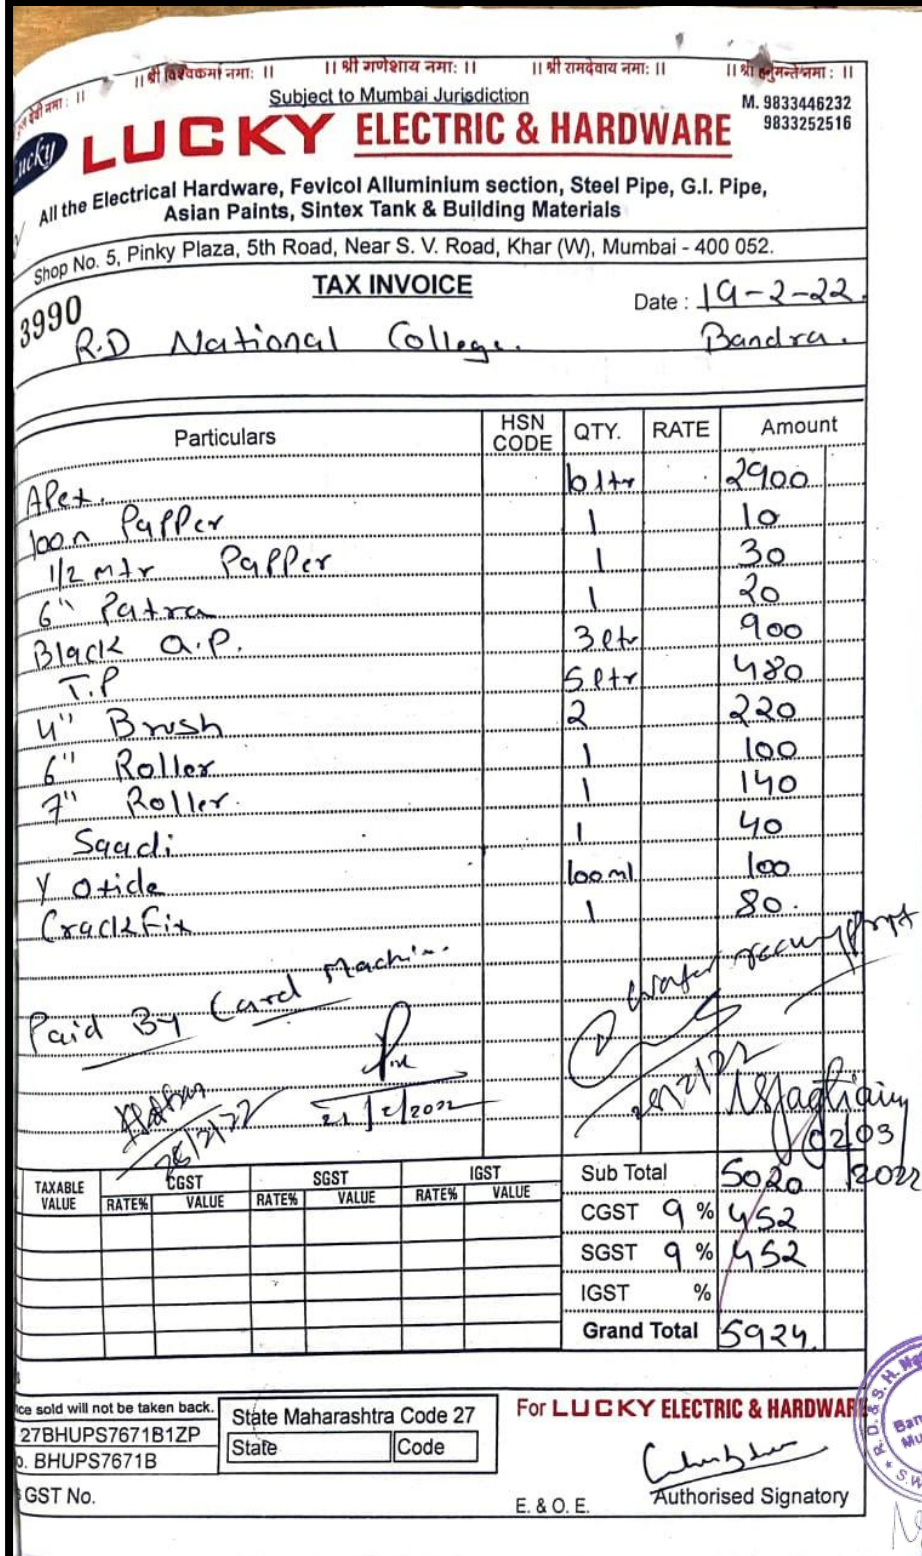 || श्री विश्वकर्मा नमः ||
|| श्री गणेशाय नमः ||
|| श्री रामदेवाय नमः ||
देवी नमः ||
Subject to Mumbai Jurisdiction
M. 9833446232
9833252516
LUCKY ELECTRIC & HARDWARE
All the Electrical Hardware, Fevicol Alluminium section, Steel Pipe, G.I. Pipe,
Asian Paints, Sintex Tank & Building Materials
Shop No. 5, Pinky Plaza, 5th Road, Near S. V. Road, Khar (W), Mumbai - 400 052.
TAX INVOICE
3990
Date : 19-2-22
R.D National College.
Bandra.
Particulars HSN CODE QTY. RATE Amount
Apex. ltr 2900
100n Papper 1 10
1/2 mtr Papper 1 30
6" Patra 1 20
Black O.P. 3 ltr 900
T.P 5 ltr 480
4" Brush 2 220
6" Roller 1 100
7" Roller. 1 140
Saadi 1 40
Y Oxide 100 ml 100
CrackFix 1 80.
Paid By Card Machin
21/2/2022
02/03
/2022
TAXABLE VALUE CGST SGST IGST
RATE% VALUE RATE% VALUE RATE% VALUE
Sub Total 5020
CGST 9 % 452
SGST 9 % 452
IGST %
Grand Total 5924.
sold will not be taken back.
27BHUPS7671B1ZP
BHUPS7671B
GST No.
State Maharashtra Code 27
State Code
For LUCKY ELECTRIC & HARDWARE
E. & O. E.
Authorised Signatory